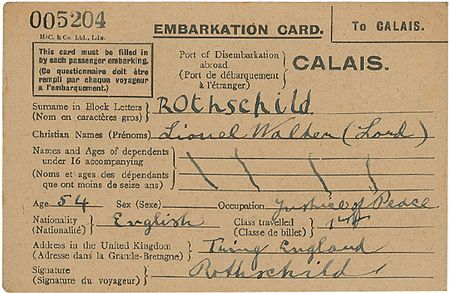 005204
McC. & Co. Ltd., Ldn.
EMBARKATION CARD.
To CALAIS.
This card must be filled in
by each passenger embarking.
(Ce questionnaire doit être
rempli par chaque voyageur
a l'embarquement.)
Port of Disembarkation
abroad
(Port de débarquement
à l'étranger)
CALAIS.
Surname in Block Letters
(Nom en caractères gros)
ROthschild
Christian Names (Prénoms) Lionel Walter (Lord)
Names and Ages of dependents
under 16 accompanying
(Noms et ages des dépendants
que ont moins de seize ans)
Age 54 Sex (Sexe) Occupation Justice of Peace
Nationality
(Nationalité)
English
Class travelled
(Classe de billet)
1st
Address in the United Kingdom
(Adresse dans la Grande-Bretagne)
Tring England
Signature
(Signature du voyageur)
Rothschild